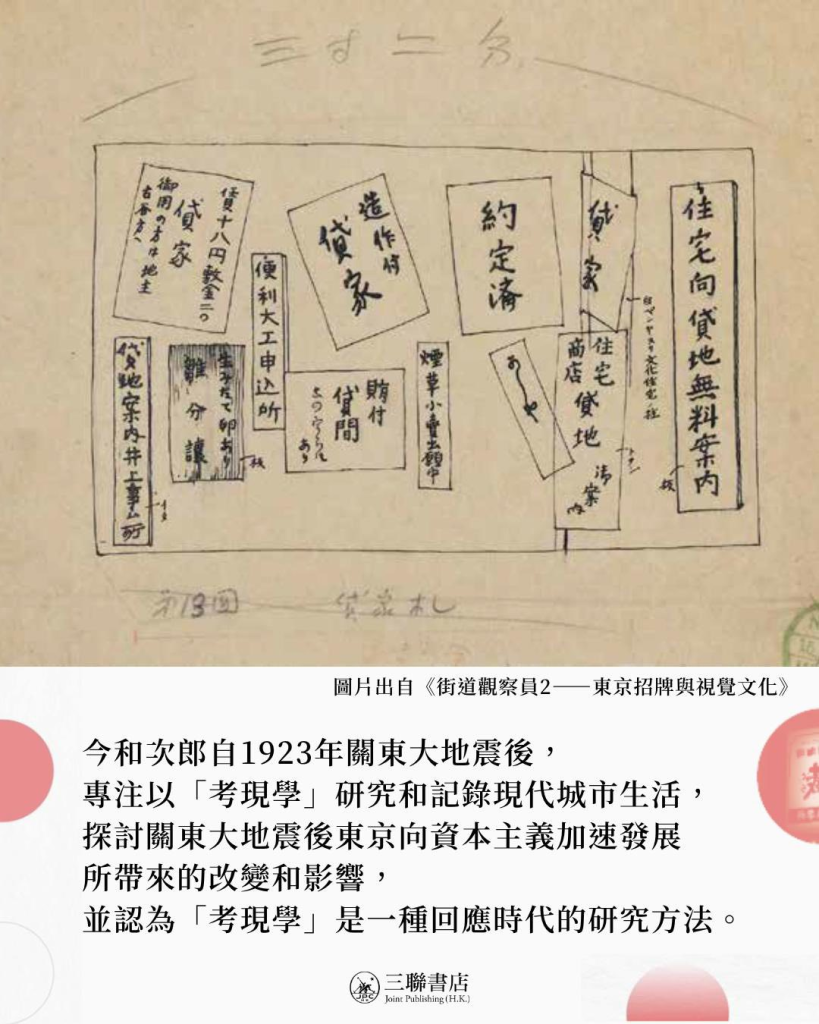 三寸二分
住宅向貸地無料案内
板
貸家
約定済
造作付
貸家
賃十八円敷金二〇
貸家
御用の方は地主
古谷方へ
便利大工申込所
住宅
商店
貸地
御案内
煙草小賣出願中
賄付
貸間
生みたて卵あり
雛分譲
板
貸地案内井上事ム所
第13図
貸家札
圖片出自《街道觀察員2——東京招牌與視覺文化》
今和次郎自1923年關東大地震後，
專注以「考現學」研究和記錄現代城市生活，
探討關東大地震後東京向資本主義加速發展
所帶來的改變和影響，
並認為「考現學」是一種回應時代的研究方法。
三聯書店
Joint Publishing (H.K.)